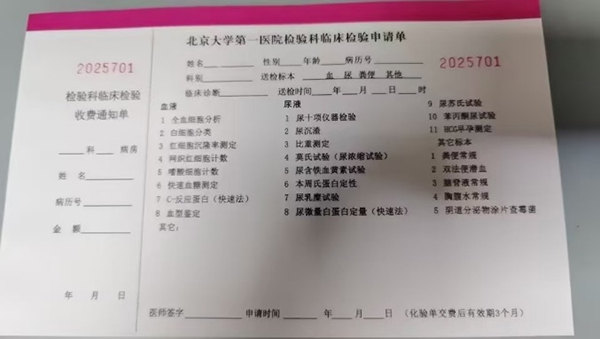 北京大学第一医院检验科临床检验申请单
2025701
检验科临床检验
收费通知单
____科____病房
姓 名________
病历号________
金 额________
年 月 日
姓名________性别____年龄____病历号________
2025701
科别________送检标本 血 尿 粪便 其他
临床诊断________送检时间____年____月____日____时
血液
1 全血细胞分析
2 白细胞分类
3 红细胞沉降率测定
4 网织红细胞计数
5 嗜酸细胞计数
6 快速血糖测定
7 C-反应蛋白(快速法)
8 血型鉴定
其它:
尿液
1 尿十项仪器检验
2 尿沉渣
3 比重测定
4 莫氏试验(尿浓缩试验)
5 尿含铁血黄素试验
6 本周氏蛋白定性
7 尿乳糜试验
8 尿微量白蛋白定量(快速法)
9 尿苏氏试验
10 苯丙酮尿试验
11 HCG早孕测定
其它标本
1 粪便常规
2 双法便潜血
3 脑脊液常规
4 胸腹水常规
5 阴道分泌物涂片查霉菌
医师签字________申请时间____年____月____日 (化验单交费后有效期3个月)